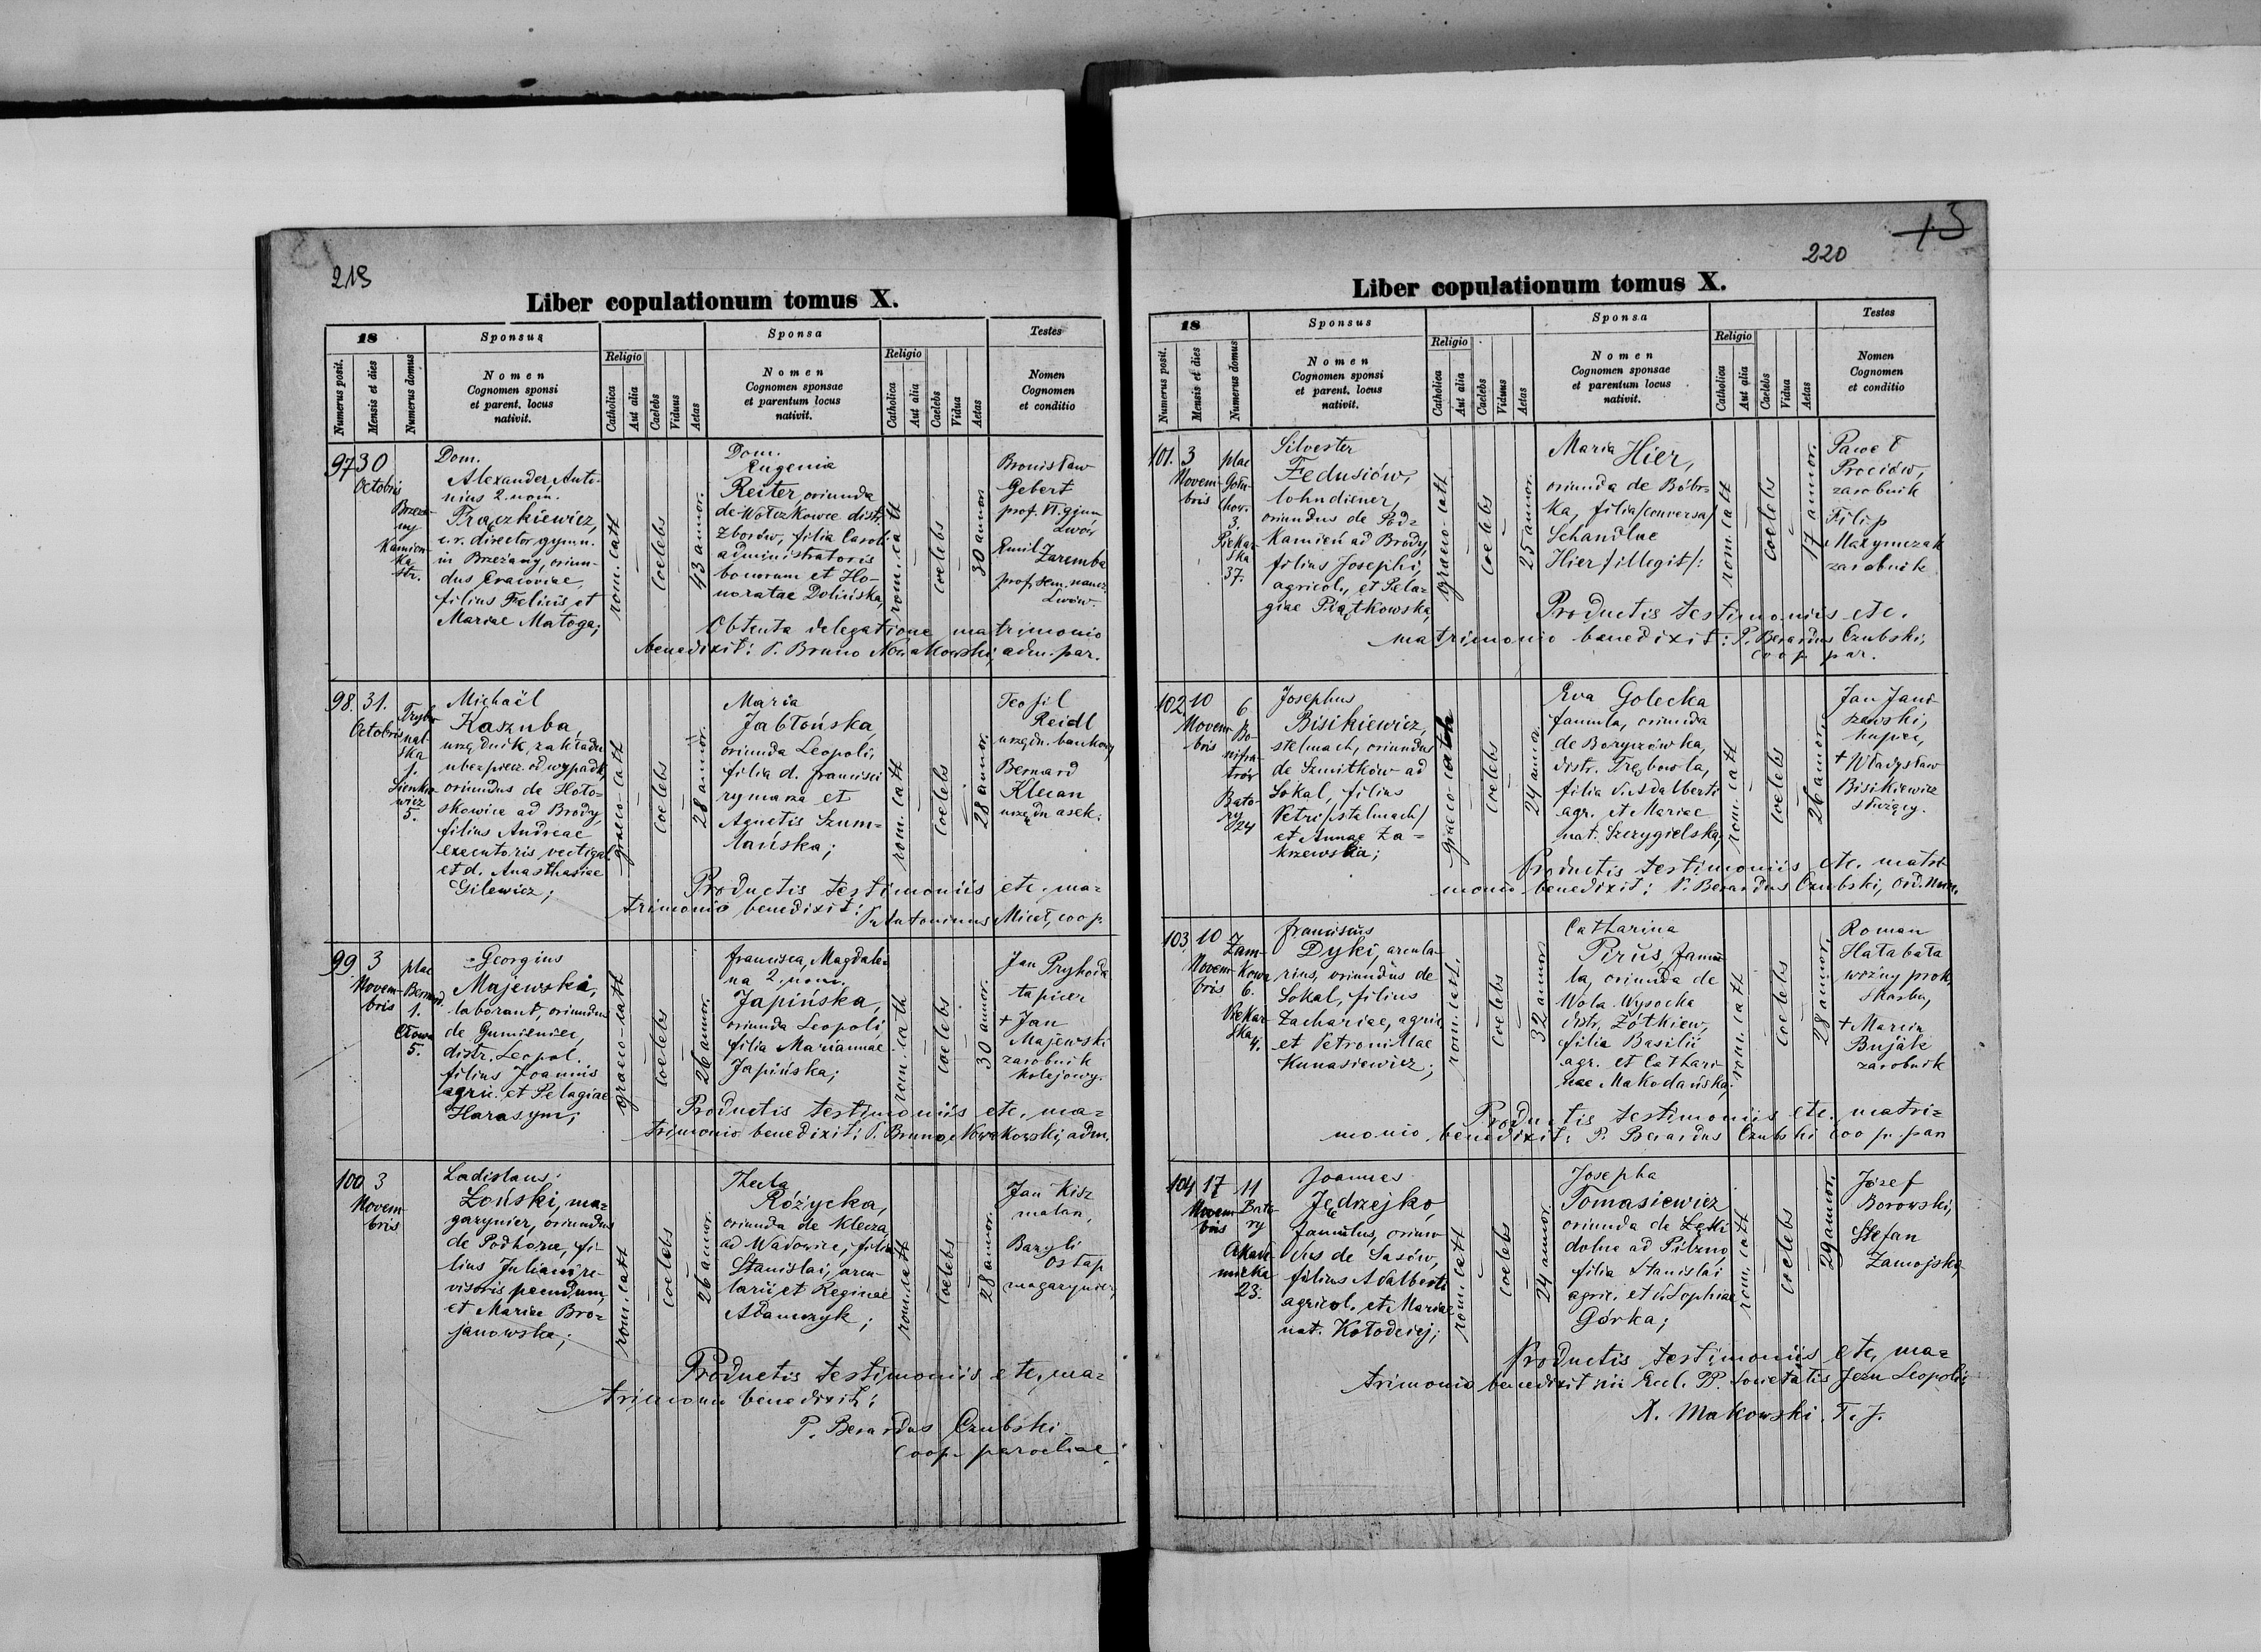 219
Liber copulationum tomus X.
18
Sponsus
Sponsa
Testes
Numerus posit.
Mensis et dies
Numerus domus
Nomen
Cognomen sponsi
et parent. locus
nativit.
Religio
Catholica
Aut alia
Caelebs
Viduus
Aetas
Nomen
Cognomen sponsae
et parentum locus
nativit.
Religio
Catholica
Aut alia
Caelebs
Vidua
Aetas
Nomen
Cognomen
et conditio
97
30
Octobris
Brzeża-
ny
Kamien-
ka
str.
Dom.
Alexander Anto-
nius 2. nom.
Frączkiewicz,
c. r. director gymn.
in Brzeżany, oriun-
dus Cracoviae,
filius Felicis et
Mariae Matoga;
rom. cath
coelebs
43 annor.
Dom.
Eugenia
Reiter, oriunda
de Wołczkowce distr.
Zborów, filia Caroli
administratoris
bonorum et Ho-
noratae Dolińska,
rom. cath
coelebs
30 annor
Bronisław
Gebert
prof. VI. gimn
Lwów
Emil Zaremba
prof. sem. naucz.
Lwów.
Obtenta delegatione matrimonio
benedixit: P. Bruno Nowakowski, adm. par.
98.
31.
Octobris
Trybu-
nal-
ska
1.
Sienkie-
wicz
5.
Michaël
Kaszuba,
urzędnik, zakładu
ubezpiecz. od wypadk,
oriundus de Hoło-
skowice ad Brody,
filius Andreae
executoris vectigal.
et d. Anasthasiae
Gilewicz;
graeco-cath
coelebs
28 annor.
Maria
Jabłońska,
oriunda Leopoli,
filia d. Francisci
rymarza et
Agnetis Szum-
lańska;
rom. cath
coelebs
28 annor.
Teofil
Reidl
urzędn. bankowy,
Bernard
Klecan
urzędn asek.
Productis testimoniis etc. ma-
trimonio benedixit:
P. Antoninus Miceł, coop.
99.
3
Novem-
bris
plac
Bernard.
1.
5.
Georgius
Majewski,
laborant, oriundus
de Gumieniec,
distr. Leopol.
filius Joannis
agric. et Pelagiae
Harasym;
graeco-cath
coelebs
26 annor.
Francisca, Magdale-
na 2. nom.
Japińska,
oriunda Leopoli,
filia Mariannae
Japińska;
rom. cath
coelebs
30 annor.
Jan Prykoda
tapicer
+ Jan
Majewski
zarobnik
kolejowy.
Productis testimoniis etc, ma-
trimonio benedixit: P. Bruno Nowakowski, adm.
100.
3
Novem-
bris
Ladislaus
Łoński, ma-
gazynier, oriundus
de Podhorce, fi-
lius Juliani re-
visoris pecudum,
et Mariae Bro-
janowska;
rom. cath
coelebs
26 annor.
Thecla
Różycka,
oriunda de Klecza
ad Wadowice, filia
Stanislai, arcu-
larii et Reginae
Adamczyk;
rom. cath
coelebs
28 annor.
Jan Kisz
malarz,
Bazyli
Ostap
magazynier,
Productis testimoniis etc, ma-
trimonio benedixit:
P. Berardus Czubski
coop. parochiae.
15
220
Liber copulationum tomus X.
18
Sponsus
Sponsa
Testes
Numerus posit.
Mensis et dies
Numerus domus
Nomen
Cognomen sponsi
et parent. locus
nativit.
Religio
Catholica
Aut alia
Caelebs
Viduus
Aetas
Nomen
Cognomen sponsae
et parentum locus
nativit.
Religio
Catholica
Aut alia
Caelebs
Vidua
Aetas
Nomen
Cognomen
et conditio
101.
3
Novem-
bris
plac
Gołu-
chow.
3.
Piekar-
ska
37.
Silvester
Fedusiów,
lohndiener,
oriundus de Pod-
kamień ad Brody,
filius Josephi,
agricol., et Pela-
giae Piątkowska,
graeco-cath
coelebs
25 annor.
Maria Hier,
oriunda de Bóbr-
ka, filia /conversa/
Scheindlae
Hier /illegit/:
rom. cath
coelebs
17 annor.
Paweł
Prociów,
zarobnik
Filip
Maxymczak
zarobnik
Productis testimoniis etc.
matrimonio benedixit: P. Berardus Czubski,
coop par.
102
10
Novem-
bris
6
Bo-
nifra-
trów
Bato-
ry
24
Josephus
Bisikiewicz,
stelmach, oriundus
de Szmitków ad
Sokal, filius
Petri /stelmach/
et Annae Za-
krzewska;
graeco-cath
coelebs
24 annor.
Eva Golecka
famula, oriunda
de Boryczówka,
distr. Trębowla,
filia Adalberti
agr. et Mariae
nat. Szczygielska,
rom. cath
coelebs
26 annor.
Jan Jani-
szewski,
kupiec,
+ Władysław
Bisikiewicz
służący.
Productis testimoniis etc. matri
monio benedixit: P. Berardus Czubski, Ord. Min.
103.
10
Novem-
bris
Zam-
kowa
6.
Piekar-
ska
4.
Franciscus
Dyki, arcula-
rius, oriundus de
Sokal, filius
Zachariae, agric.
et Petronillae
Kunasiewicz;
rom. cath.
coelebs
32 annor
Catharina
Pirus, famu-
la, oriunda de
Wola Wysocka
distr. Żółkiew,
filia Basilii
agr. et Cathari-
nae Makodańska;
rom. cath
coelebs
28 annor.
Roman
Hałabała
woźny prok.
skarbu,
+ Marcin
Bujak
zarobnik
Productis testimoniis etc. matri-
monio, benedixit: P. Berardus Czubski coop. par
104
17
Novem-
bris
11
Bato-
ry
Akade-
micka
23.
Joannes
Jędrzejko,
famulus, oriun-
dus de Sasów,
filius Adalberti
agricol. et Mariae
nat. Kołodziej;
rom. cath
coelebs
24 annor.
Josepha
Tomasiewicz
oriunda de Łęki
dolne ad Pilzno,
filia Stanislai
agric. et Sophiae
Górka;
rom. cath
coelebs
29 annor.
Józef
Borowski,
Stefan
Zamojski,
Productis testimoniis etc, ma-
trimonio benedixit in Eccl. PP. Societatis Jesu Leopoli:
X. Makowski. T. J.